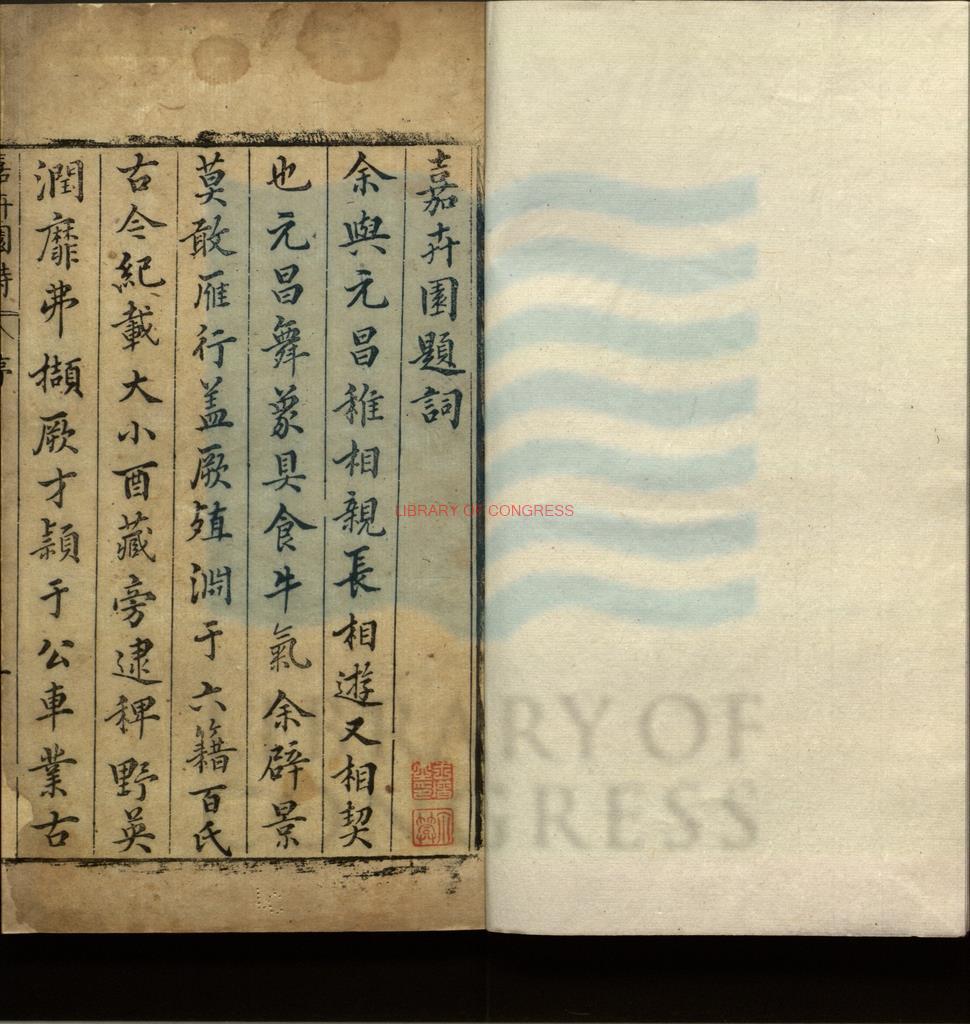 嘉卉園題詞
余與元昌稚相親長相遊又相契
也元昌舞象具食牛氣余辟景
莫敢雁行盖厥殖淵于六籍百氏
古今紀載大小酉藏旁逮稗野英
潤靡弗擷厥才穎于公車業古
嘉卉園詩 序 一
LIBRARY OF CONGRESS
LIBRARY OF
CONGRESS